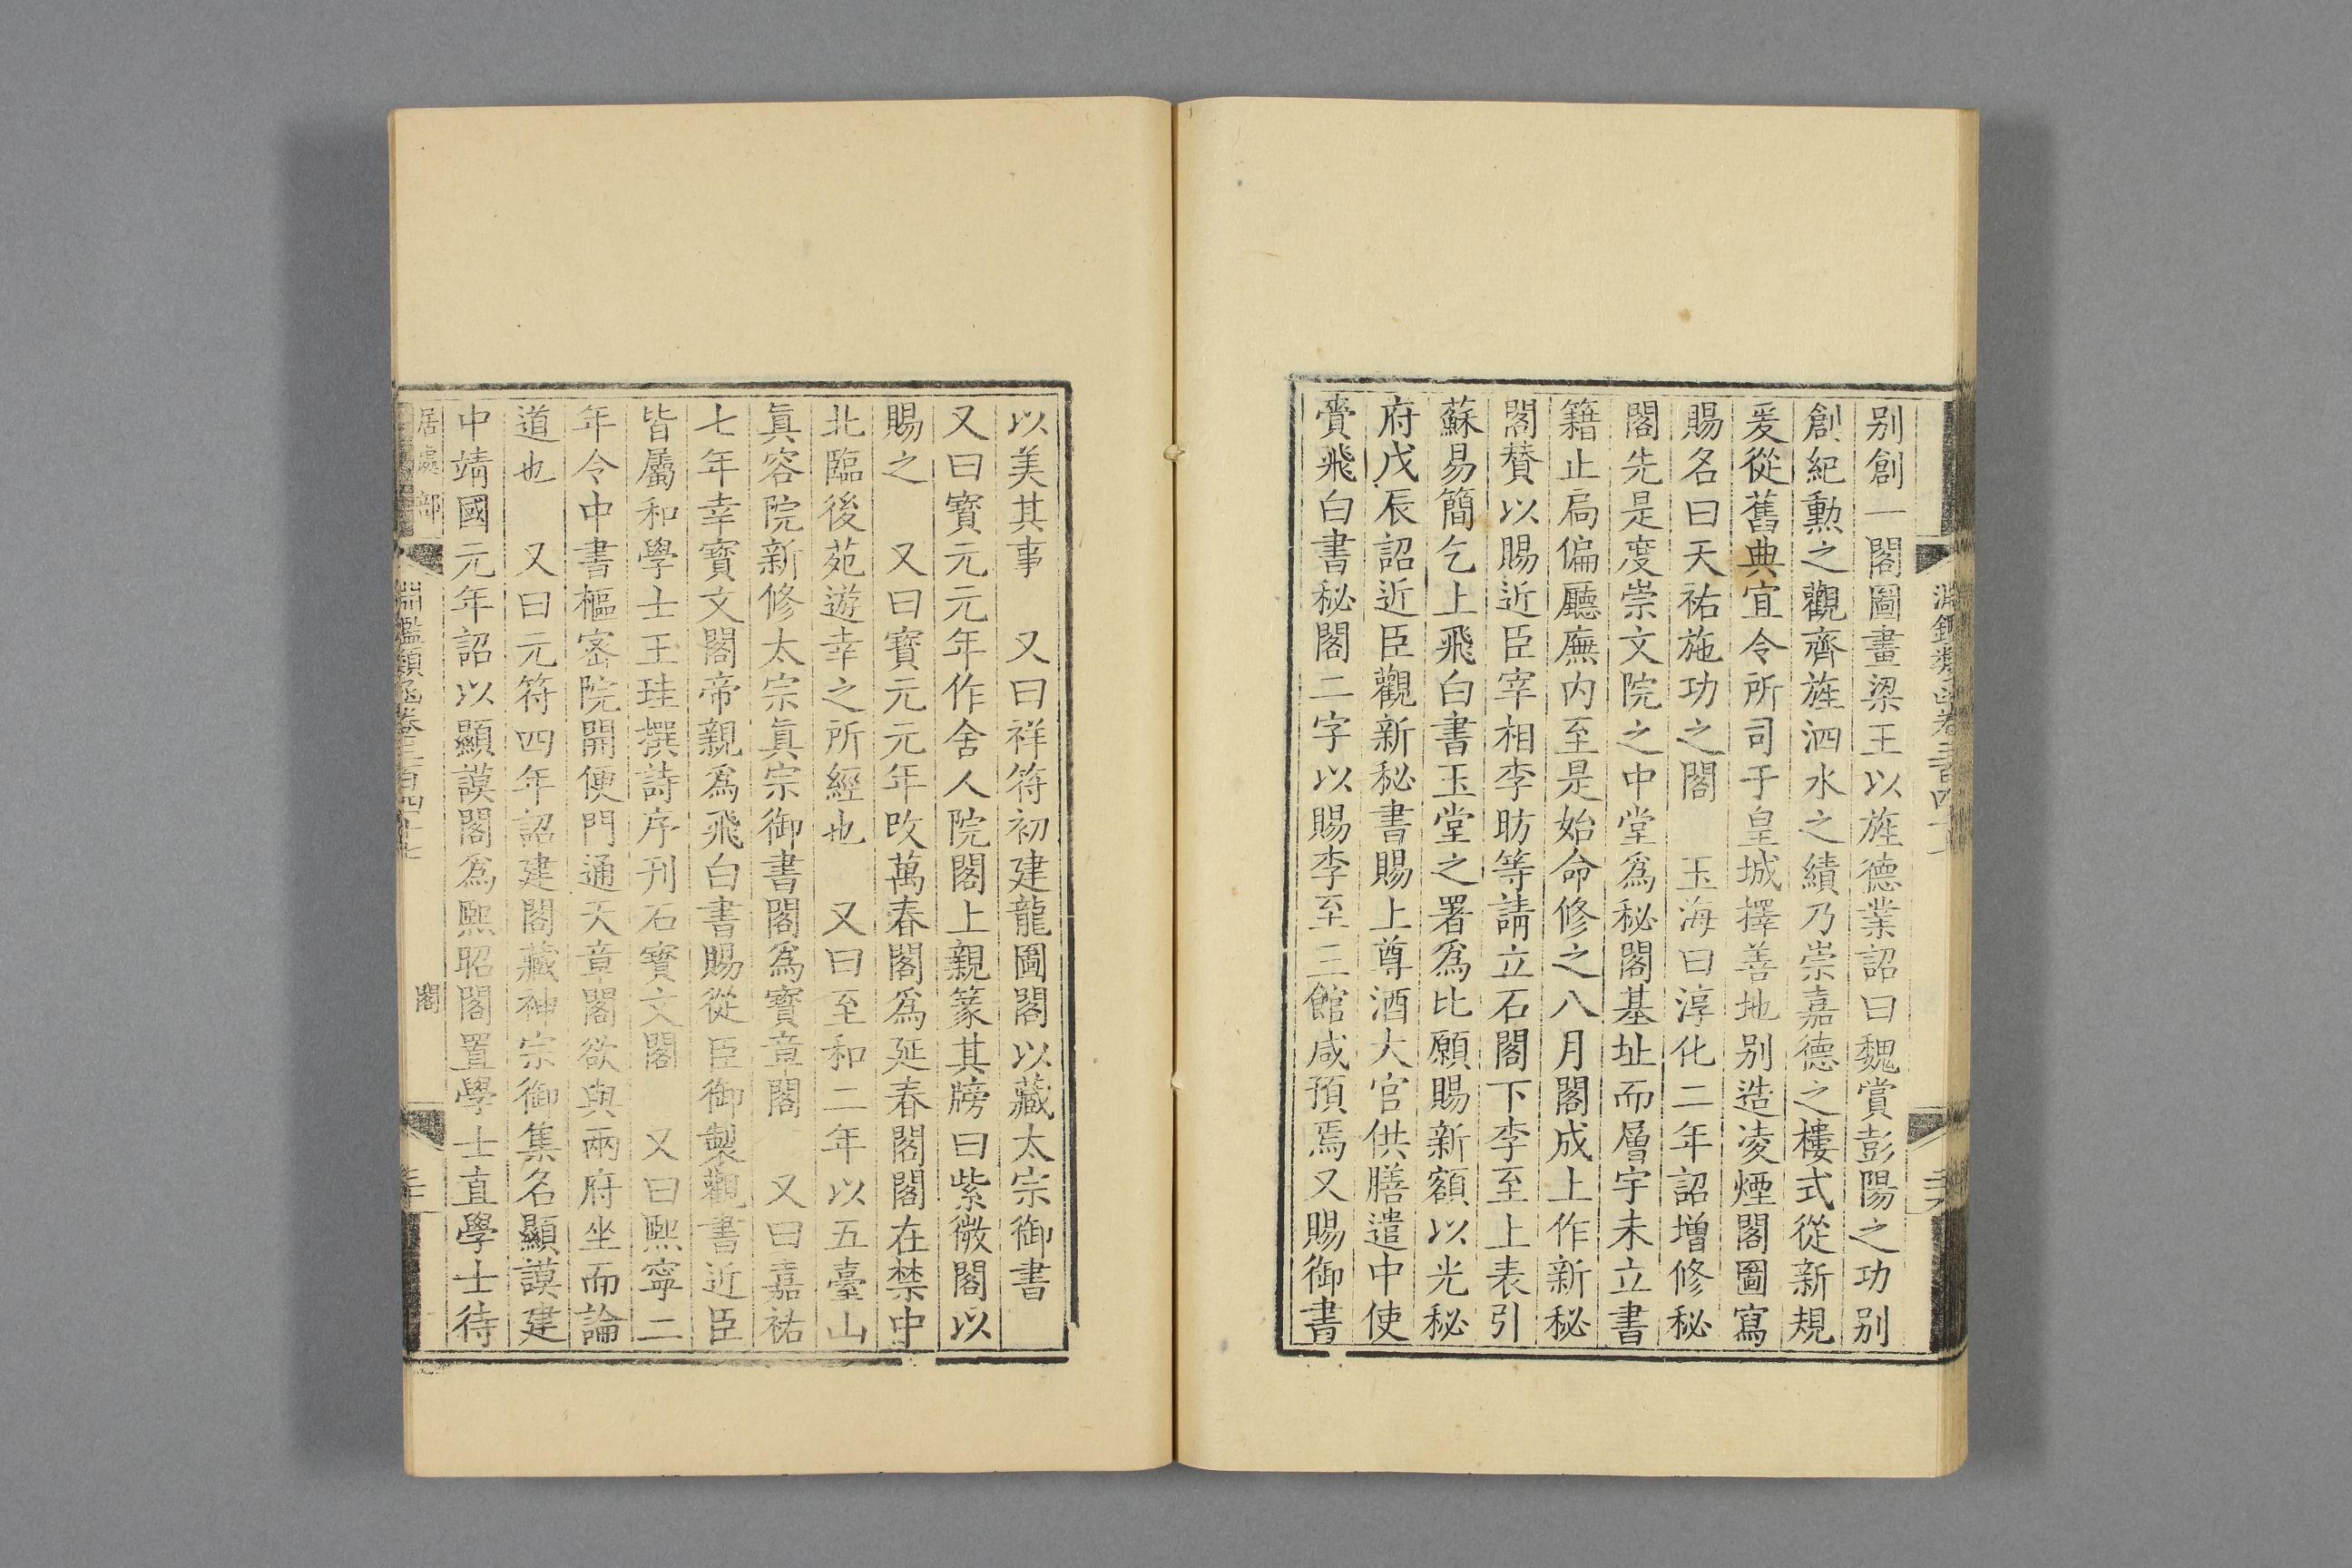 别創一閣圖畫梁王以旌德業詔曰魏賞彭陽之功别
創紀勲之觀齊旌泗水之績乃崇嘉德之樓式從新規
爰從舊典宜令所司于皇城擇善地别造凌煙閣圖寫
賜名曰天祐旌功之閣　玉海曰淳化二年詔增修秘
閣先是度崇文院之中堂爲秘閣基址而層宇未立書
籍止扃偏廳廡内至是始命修之八月閣成上作新秘
閣賛以賜近臣宰相李昉等請立石閣下李至上表引
蘇易簡乞上飛白書玉堂之署爲比願賜新額以光秘
府戊辰詔近臣觀新秘書賜上尊酒大官供膳遣中使
賫飛白書秘閣二字以賜李至三館咸預焉又賜御書
以美其事　又曰祥符初建龍圖閣以藏太宗御書
又曰寳元元年作舍人院閣上親篆其牓曰紫微閣以
賜之　又曰寳元元年改萬春閣爲延春閣閣在禁中
北臨後苑遊幸之所經也　又曰至和二年以五臺山
眞容院新修太宗眞宗御書閣爲寳章閣　又曰嘉祐
七年幸寳文閣帝親爲飛白書賜從臣御製觀書近臣
皆屬和學士王珪撰詩序刊石寳文閣　又曰熙寧二
年令中書樞宻院開便門通天章閣欲與兩府坐而論
道也　又曰元符四年詔建閣藏神宗御集名顯謨建
中靖國元年詔以顯謨閣爲熙昭閣置學士直學士待
居處部　淵鑑類函卷三百四十七　閣